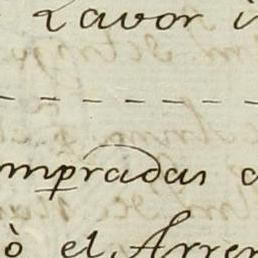 Labor i
mpradas a
ò el Arren